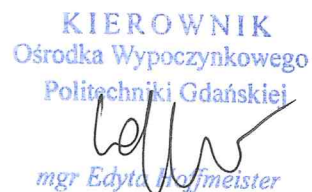 KIEROWNIK
Ośrodka Wypoczynkowego
Politechniki Gdańskiej
mgr Edyta Hoffmeister